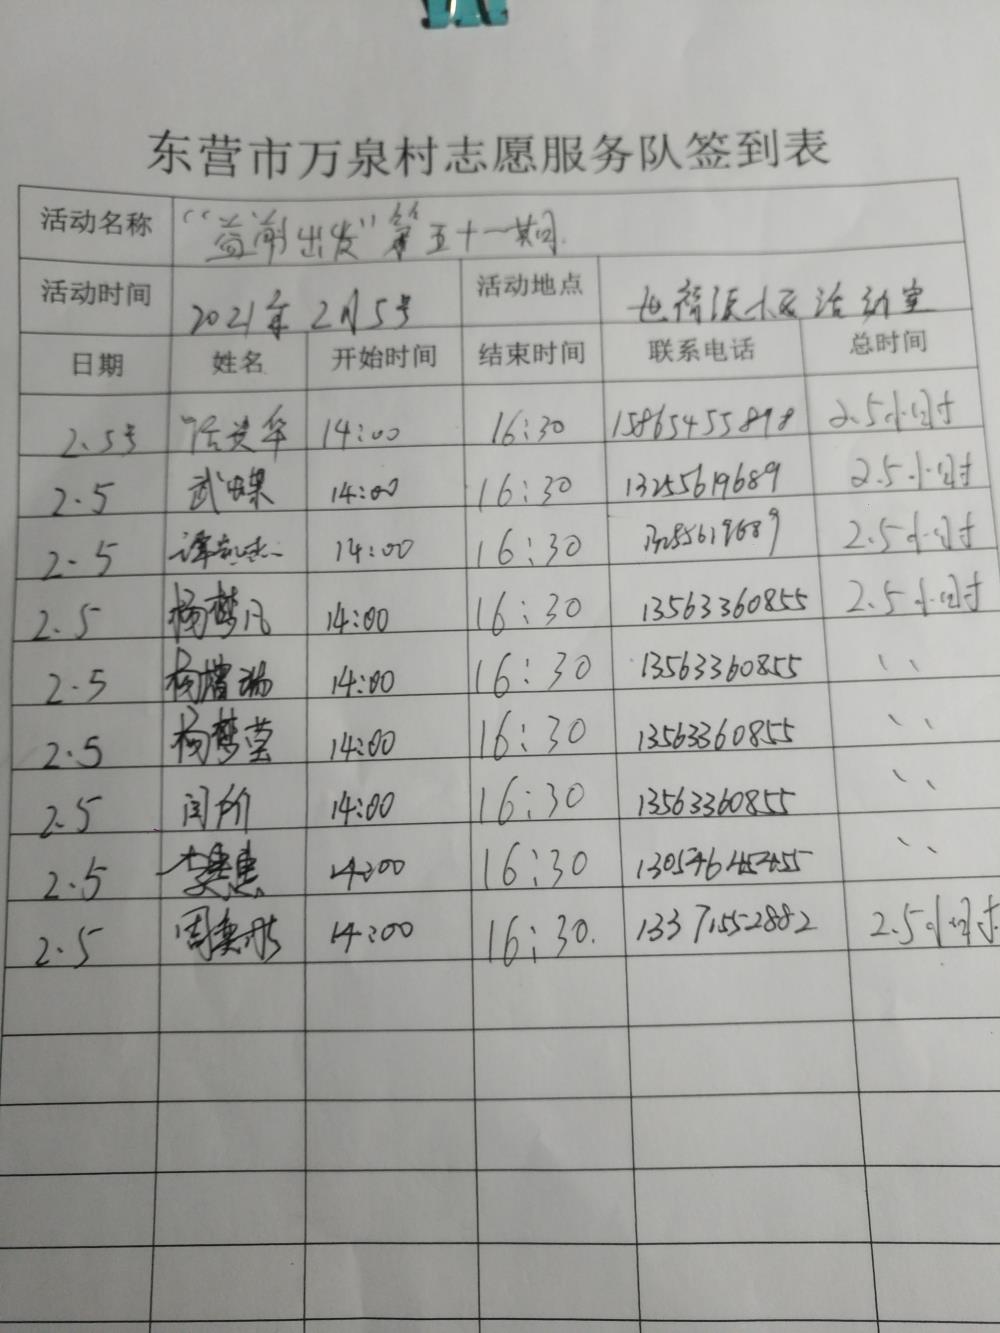 东营市万泉村志愿服务队签到表
活动名称 “益前出发”第五十一期
活动时间 2021年2月5号 活动地点 活动室
日期 姓名 开始时间 结束时间 联系电话 总时间
2.5号 14:00 16:30 15865455898 2.5小时
2.5 武 14:00 16:30 13255619689 2.5小时
2.5 谭 14:00 16:30 13255619689 2.5小时
2.5 杨梦凡 14:00 16:30 13563360855 2.5小时
2.5 杨 14:00 16:30 13563360855 、、
2.5 杨梦莹 14:00 16:30 13563360855 、、
2.5 闫价 14:00 16:30 13563360855 、、
2.5 14:00 16:30 、、
2.5 周 14:00 16:30. 13371552882 2.5小时